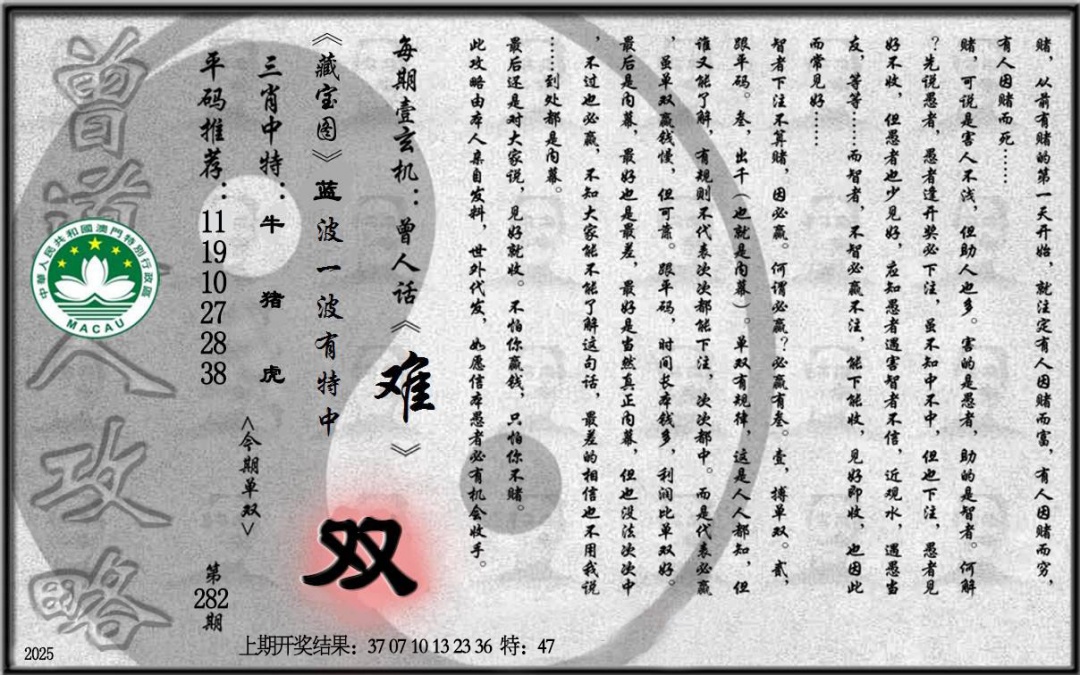 赌，从前有赌的第一天开始，就注定有人因赌而富，有人因赌而穷，
有人因赌而死……
赌，可说是害人不浅，但助人也多。害的是愚者，助的是智者。何解
？先说愚者，愚者逢开奖必下注，虽不知中不中，但也下注，愚者见
好不收，但愚者也少见好，应知愚者遇害智者不信，近观水，遇愚当
友，等等……而智者，不智必赢不注，能下能收，见好即收，也因此
而常见好……
智者下注不算赌，因必赢。何谓必赢？必赢有叁。壹，搏单双。贰，
跟平码。叁，出千（也就是内幕）。单双有规律，这是人人都知，但
谁又能了解，有规则不代表次次都能下注，次次都中。而是代表必赢
，虽单双赢钱慢，但可靠。跟平码，时间长本钱多，利润比单双好。
最后是内幕，最好也是最差，最好是当然真正内幕，但也没法次次中
，不过也必赢，不知大家能不能了解这句话，最差的相信也不用我说
……到处都是内幕。
最后还是对大家说，见好就收。不怕你赢钱，只怕你不赌。
此攻略由本人亲自发料，世外代发，如愿信本愚者必有机会收手。
每期壹玄机：曾人话《难》
《藏宝图》蓝波一波有特中
双
三肖中特：牛 猪 虎
<今期单双>
平码推荐：11 19 10 27 28 38
第282期
曾道人攻略
中華人民共和國澳門特別行政區
MACAU
2025
上期开奖结果：37 07 10 13 23 36 特：47